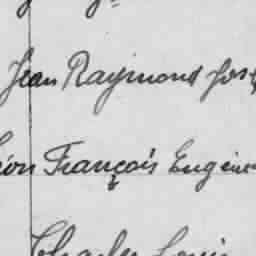 Jean Raymond Jos
éon François Eugène
Charles Louis